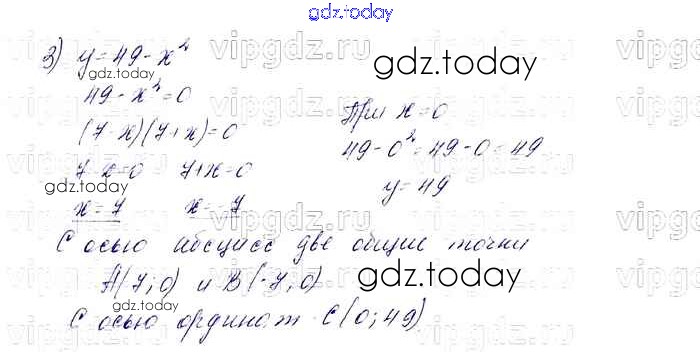 gdz.today
3) y=49-x²
vipgdz.ru
gdz.today
49-x²=0
(7-x)(7+x)=0
7-x=0 7+x=0
gdz.today
x=7 x=-7
При x=0
49-0²=49-0=49
y=49
С осью абсцисс две общие точки
A(7;0) и B(-7;0)
gdz.today
С осью ординат C(0;49)